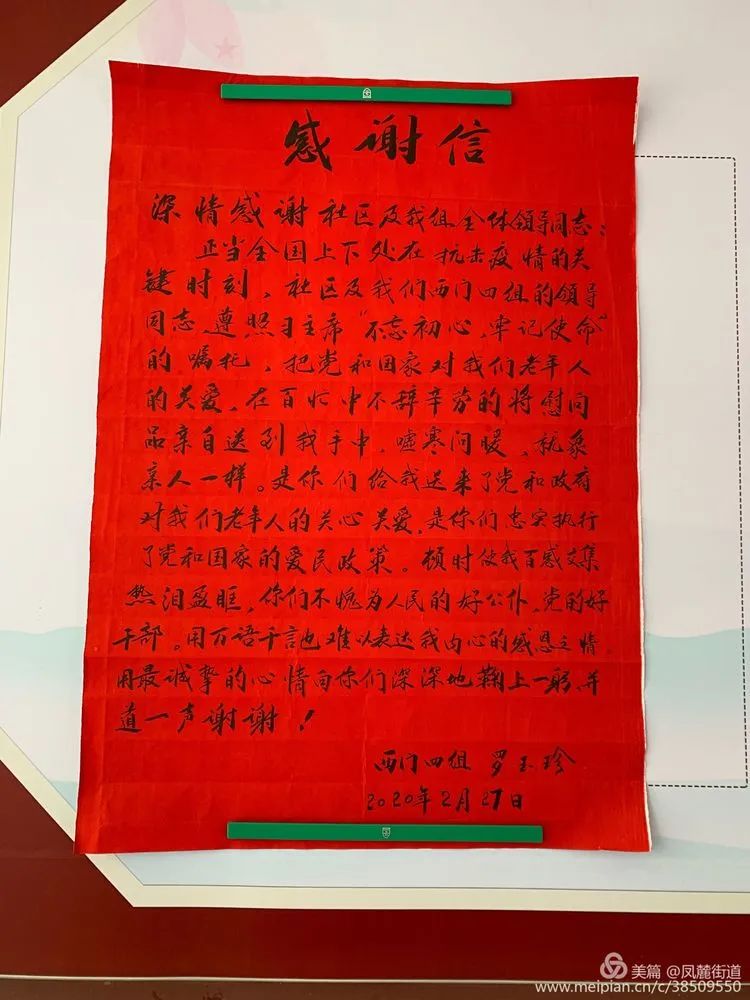 感谢信
深情感谢社区及我组全体领导同志：
正当全国上下处在抗击疫情的关
键时刻，社区及我们西门四组的领导
同志，遵照习主席“不忘初心，牢记使命”
的嘱托，把党和国家对我们老年人
的关爱，在百忙中不辞辛劳的将慰问
品亲自送到我手中，嘘寒问暖，就象
亲人一样。是你们给我送来了党和政府
对我们老年人的关心关爱，是你们忠实执行
了党和国家的爱民政策。顿时使我百感交集
热泪盈眶，你们不愧为人民的好公仆，党的好
干部。用百语千言也难以表达我内心的感恩之情
用最诚挚的心情向你们深深地鞠上一躬，并
道一声谢谢！
西门四组 罗玉珍
2020年2月27日
美篇 @凤麓街道
www.meipian.cn/c/38509550